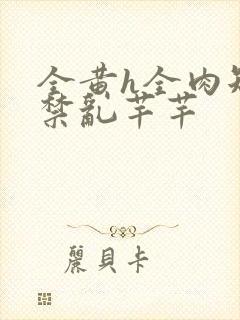 全黄h全肉短
禁乱芊芊
麗貝卡